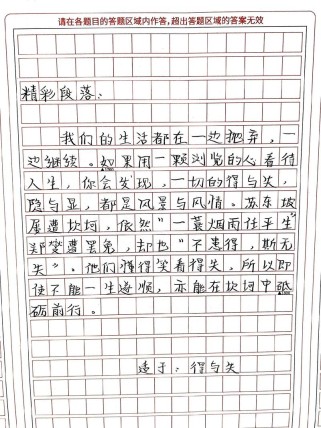 请在各题目的答题区域内作答，超出答题区域的答案无效
精彩段落：
我们的生活都在一边抛弃，一
边继续。如果用一颗浏览的心看待
人生，你会发现，一切的得与失，
隐与显，都是风景与风情。苏东坡
屡遭坎坷，依然“一蓑烟雨任平生”
郑燮遭罢免，却也“不患得，斯无
失”。他们懂得笑看得失。所以即
使不能一生逐顺，亦能在坎坷中砥
砺前行。
适于：得与失